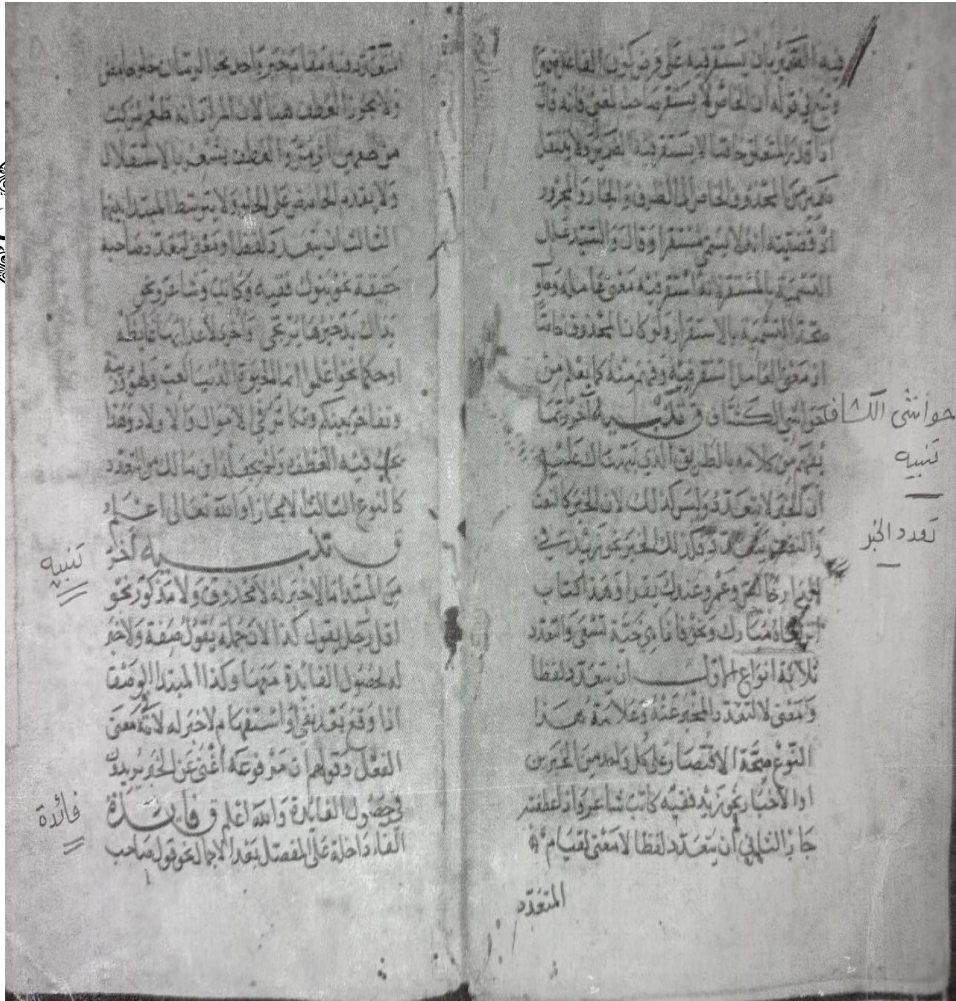 فيه الضمير بان يستقر فيه على فرض كون الفاعل ضميرا
ونبع في قوله ان الخاص لا يستقر صاحب المغنى فانه قال
اذا قدر المتعلق خاصا لا يستقر فيه الضمير ولا ينتقل
ضمير من المحذوف الخاص الى الظرف والجار والمجرور
اذ قضيته انه لا يسمى مستقرا وقال والسيد علل
التسمية بالمستقر لانه استقر فيه معنى عامله وهو
صحة التسمية بالاستقرار ولو كان المحذوف خاصا
اذ معنى العامل استقر فيه وفهم منه كما يعلم من
حواشي الكشاف ق تنبيه آخر ربما
يفهم من كلامه بالطريق الذي نبهناك عليه
ان الخبر لا يتعدد وليس كذلك لان الخبر كالنعت
والنعت يتعدد فكذلك الخبر نحو زيد في
الدار وعمرو عندك بقرا وهذا كتاب
انزلناه مبارك ونحو فاذا هي حية تسعى والتعدد
ثلاثة انواع الاول ان يتعدد لفظا
ومعنى لا لتعدد المخبر عنه وعلامة هذا
النوع صحة الاقتصار على كل واحد من الخبرين
او الاخبار نحو زيد فقيه كاتب شاعر واذا عطفته
جاز الثاني ان يتعدد لفظا لا معنى لقيام
المتعدد
حواشى الكشاف
تنبيه
تعدد الخبر
المتعدد فيه مقام خبر واحد نحو الرمان حلو حامض
ولا يجوز العطف هنا لان المراد انه طعم مركب
من طعمين او مز والعطف يشعر بالاستقلال
ولا يقدم الحامض على الحلو ولا يتوسط المبتدا بينهما
الثالث ان يتعدد لفظا ومعنى لتعدد صاحبه
حقيقة نحو بنوك فقيه وكاتب وشاعر ونحو
يداك يد خيرها يرتجى واخرى لاعدائها غايظه
او حكما نحو اعلموا انما الحيوة الدنيا لعب ولهو وزينة
وتفاخر بينكم وتكاثر في الاموال والاولاد وهذا
يجب فيه العطف ولم يجعله ابن مالك من التعدد
كالنوع الثالث الا مجازا والله تعالى اعلم
ق تنبيه آخر
من المبتدا ما لا خبر له لا محذوف ولا مذكور نحو
اقل رجل يقول كذا لان جملة يقول صفة ولا خبر
له لحصول الفائدة منها وكذا المبتدا الوصف
اذا وقع بعد نفي او استفهام لا خبر له لانه بمعنى
الفعل وقولهم ان مرفوعه اغنى عن الخبر يريدون
في حصول الفائدة والله اعلم ق فائدة
الفاء داخلة على المفصل بعد الاجمال نحو قول صاحب
تنبيه
فائدة